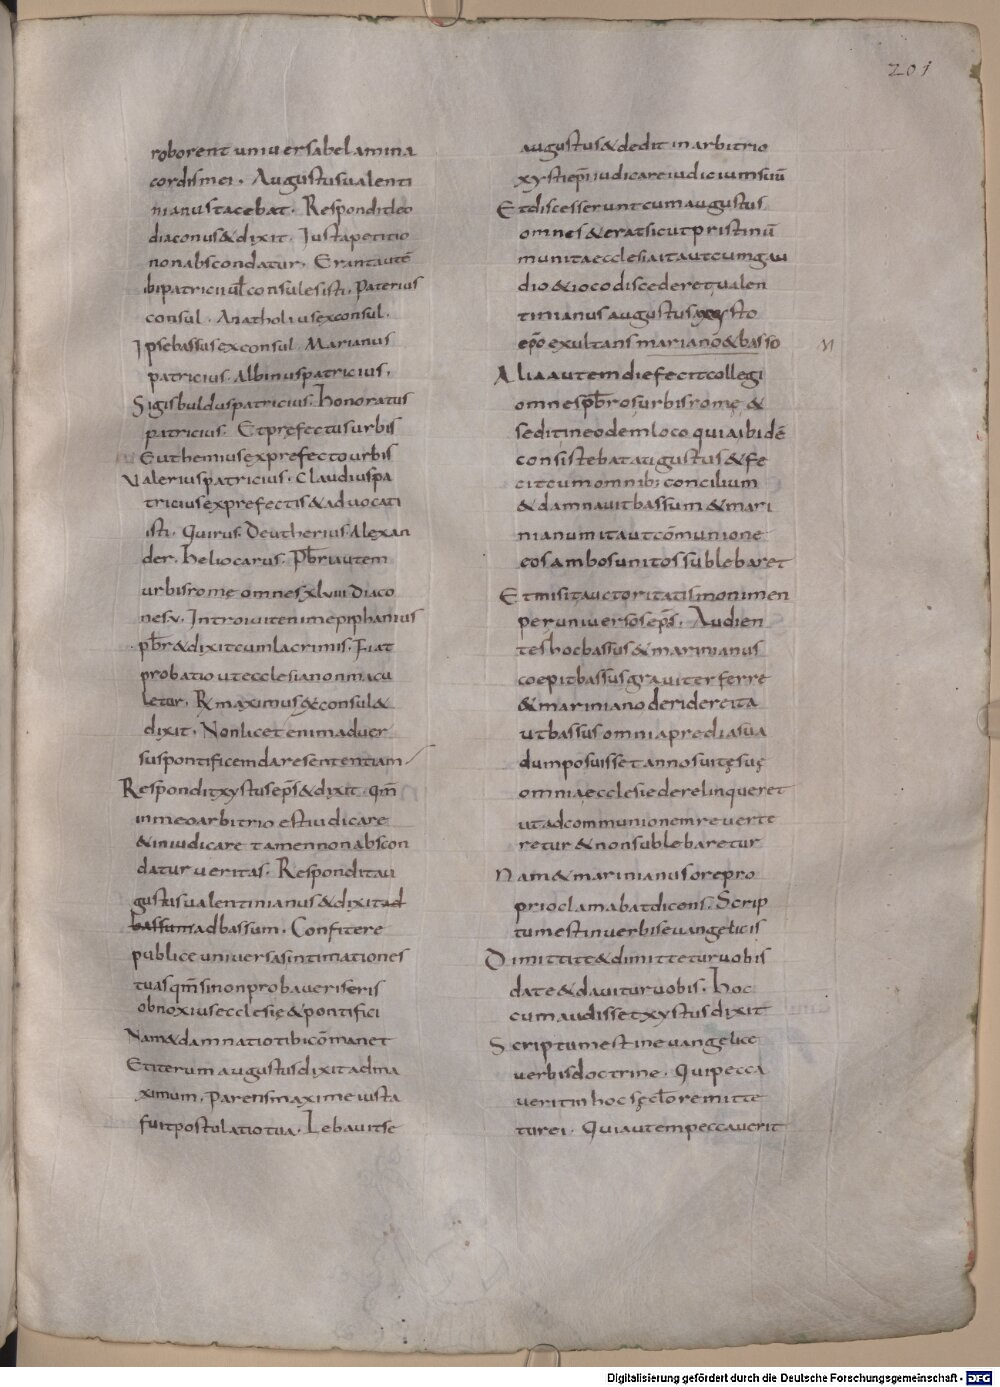 201
roborent universabelamina
cordis mei. Augustus valenti
nianus tacebat. Respondit leo
diaconus & dixit. Justa petitio
non abscondatur. Erant autē
ibi patricii vel consules isti. Paterius
consul. Anatholius exconsul.
Ipse bassus exconsul. Marianus
patricius. Albinus patricius.
Sigisbuldus patricius. Honoratus
patricius. Et prefectus urbis
Euthemius ex prefecto urbis
Valerius patricius. Claudius pa
tricius ex prefectis & advocati
isti. Quirus. Deutherius. Alexan
der. heliocarus. Pbri autem
urbis romę omnes xlviii diaco
nes.v. Introivit enim epiphanius
pbr & dixit cum lacrimis. Fiat
probatio ut ecclesia non macu
letur. R maximus ex consul &
dixit. Non licet enim adver
sus pontificem dare sententiam
Respondit xystus eps & dixit. qm̄
in meo arbitrio est iudicare
& in iudicare tamen non abscon
datur veritas. Respondit au
gustus valentinianus & dixit ad
bassum ad bassum. Confitere
publice universas intimationes
tuas qm̄ si non probaveris eris
obnoxius ecclesię & pontifici
Nam & damnatio tibi cōmanet
Et iterum augustus dixit ad ma
ximum. Parens maxime iusta
fuit postulatio tua. Lebavit se
augustus & dedit in arbitrio
xysti epi iudicare iudicium suū
Et discesserunt cum augustus
omnes & erat sicut pristinū
munita ecclesia ita ut cum gau
dio & ioco discederet valen
tinianus augustus xysto
epo exultans mariano & basso
Alia autem die fecit collegi
omnes pbros urbis romę &
sedit in eodem loco quia ibidē
consistebat augustus & fe
cit cum omnib; concilium
& damnavit bassum & mari
nianum ita ut cōmunione
eos ambos unitos sublebaret
Et misit auctoritatis monimen
per universos eps. Audien
tes hoc bassus & marinianus
coepit bassus graviter ferre
& mariniano deridere ita
ut bassus omnia predia sua
dum posuisset anno suitę suę
omnia ecclesie derelinqueret
ut ad communionem reverte
retur & non sublebaretur
Nam & marinianus ore pro
prio clamabat dicens. Scrip
tum est in verbis evangelicis
Dimittite & dimittetur vobis
date & davitur vobis. hoc
cum audisset xystus dixit
Scriptum est in evangelicę
verbis doctrine. Qui pecca
verit in hoc sęclo remitte
tur ei. Qui autem peccaverit
Digitalisierung gefördert durch die Deutsche Forschungsgemeinschaft - DFG